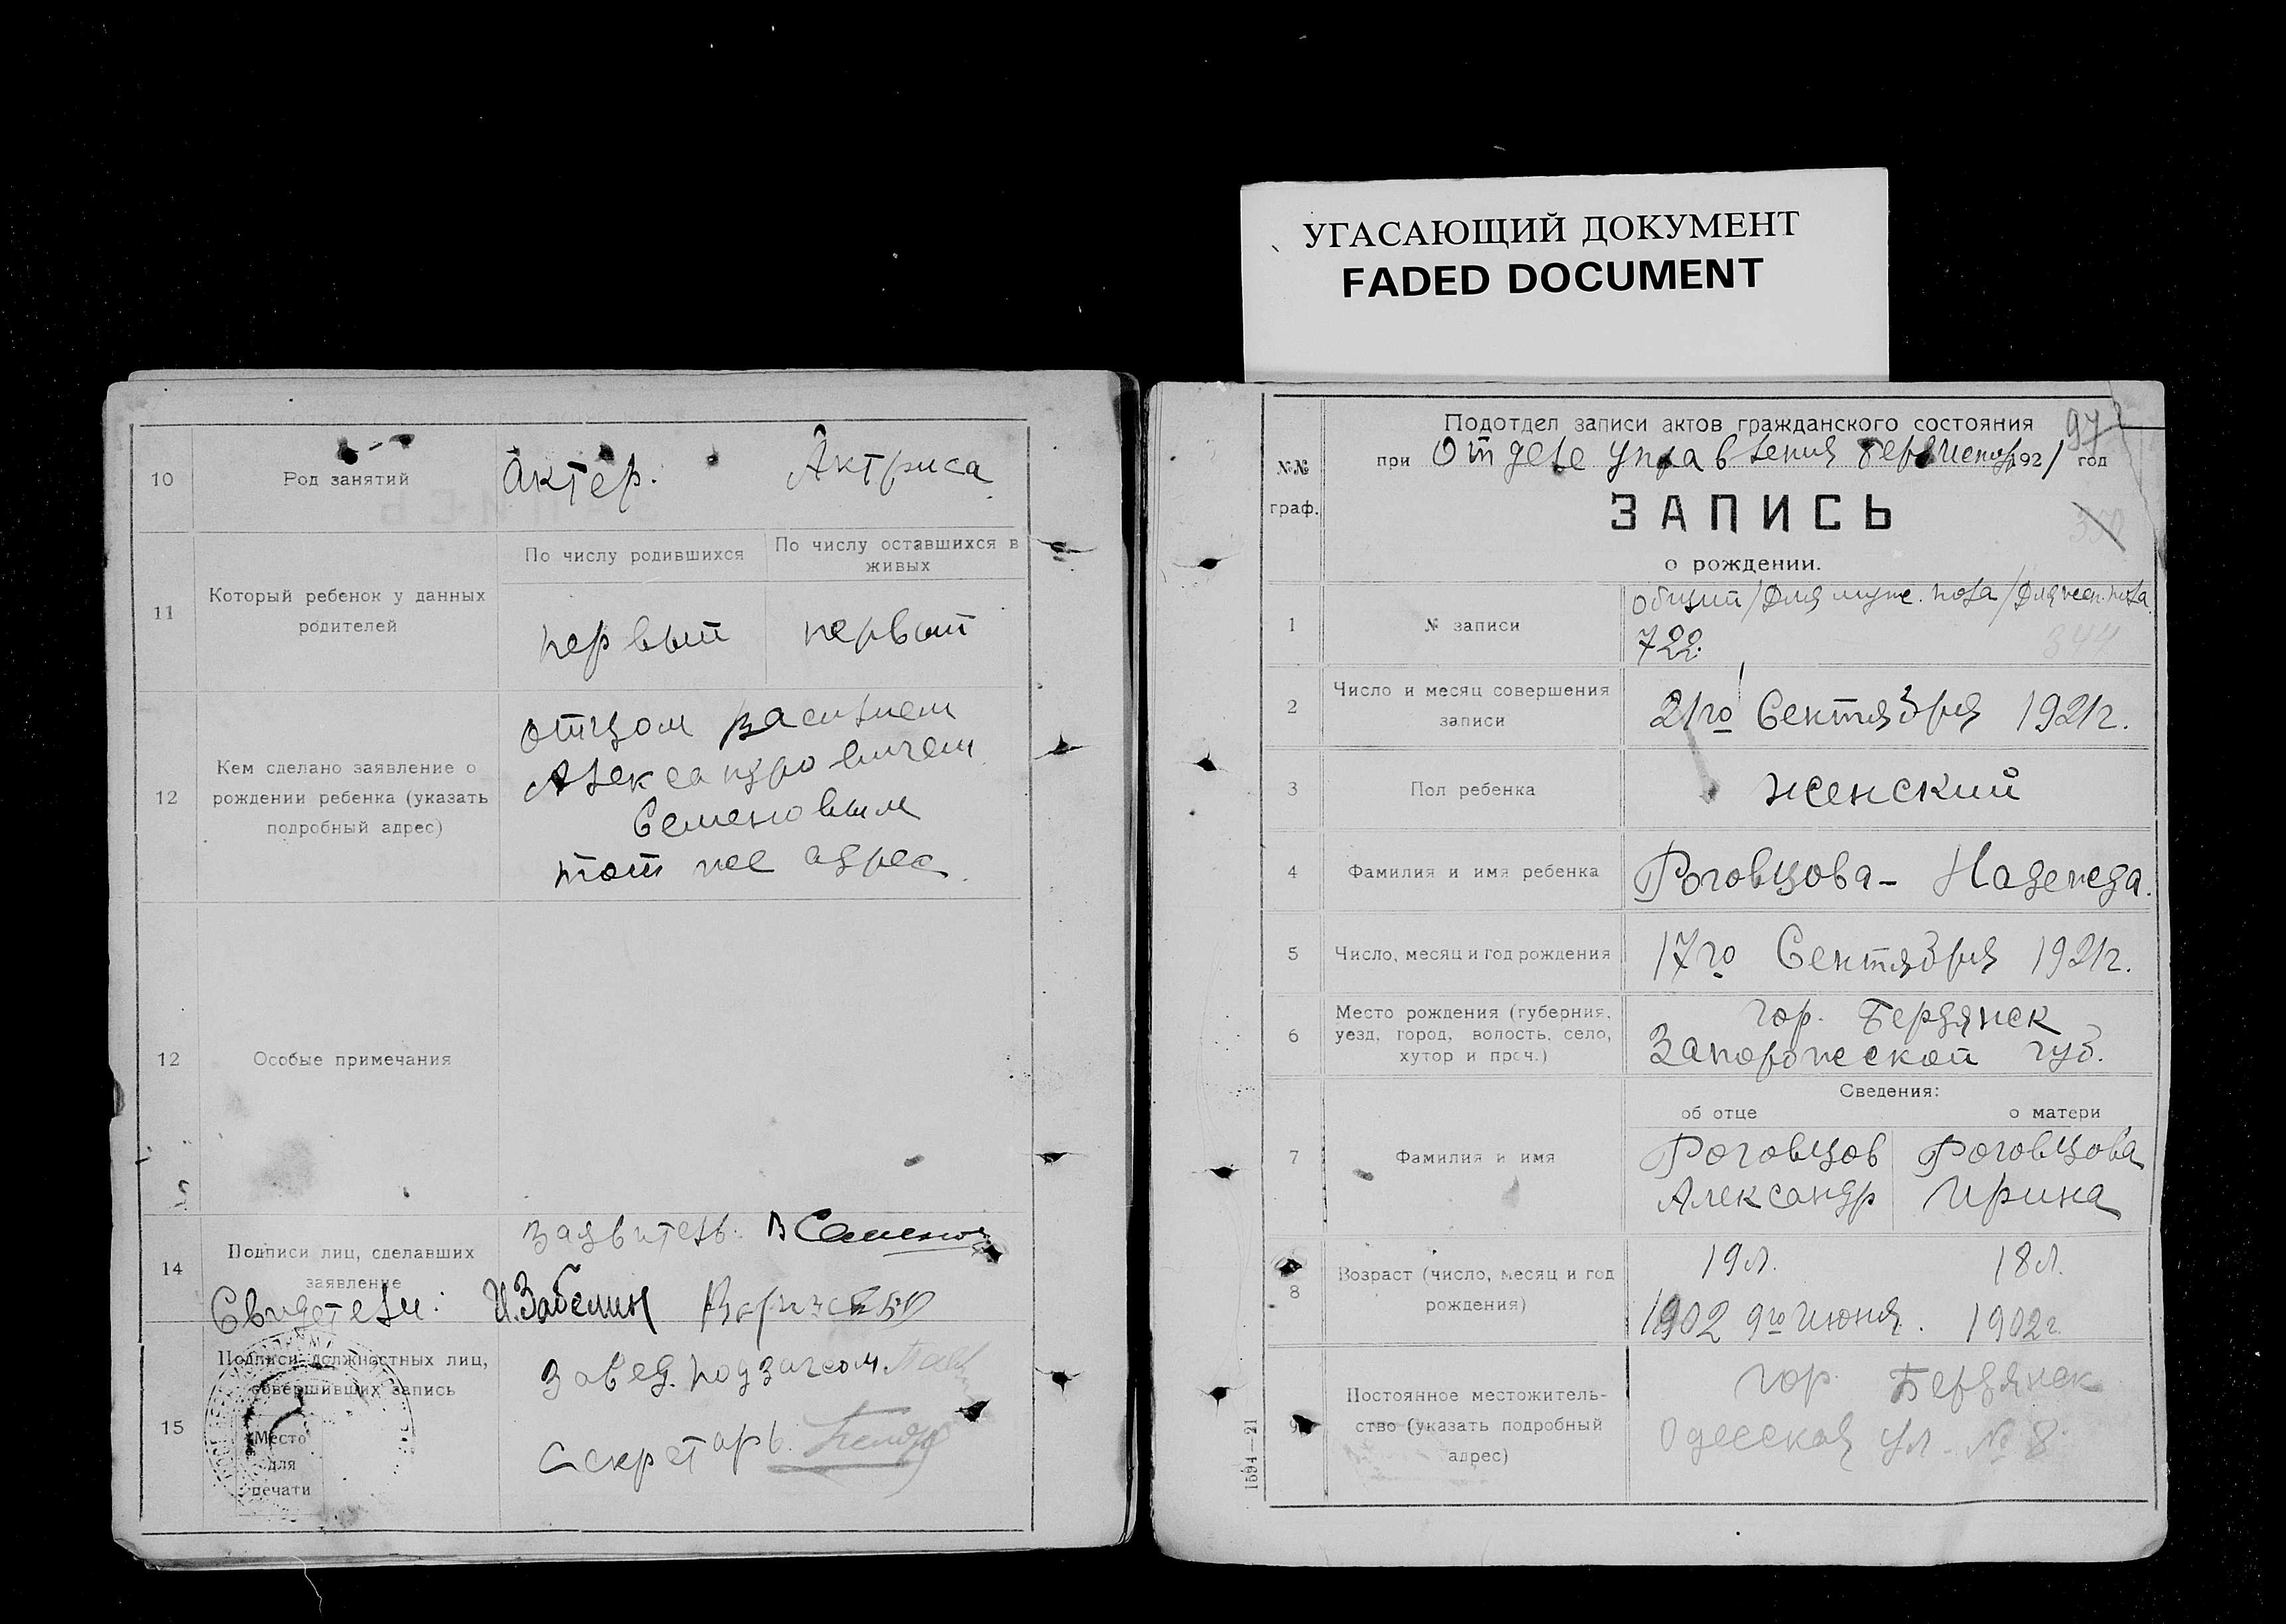 УГАСАЮЩИЙ ДОКУМЕНТ
FADED DOCUMENT
10
Род занятий
Актер.
Актриса
11
Который ребенок у данных родителей
По числу родившихся
По числу оставшихся в живых
первый
первый
12
Кем сделано заявление о рождении ребенка (указать подробный адрес)
отцом Василием
Александровичем
Семеновым
тот же адрес.
12
Особые примечания
14
Подписи лиц, сделавших заявление
Заявитель: В Семенов
Свидетели: И. Забелин
15
Подписи должностных лиц, совершивших запись
Место для печати
Завед. подзагсом
Секретарь
97
№№ граф.
Подотдел записи актов гражданского состояния
при Отделе Управления 1921 год
ЗАПИСЬ
о рождении.
1
№ записи
Общий / Для муж. пола / Для жен. пола
722.
344
2
Число и месяц совершения записи
21го Сентября 1921г.
3
Пол ребенка
женский
4
Фамилия и имя ребенка
Роговцова - Надежда.
5
Число, месяц и год рождения
17го Сентября 1921г.
6
Место рождения (губерния, уезд, город, волость, село, хутор и проч.)
гор. Бердянск
Запорожской губ.
Сведения:
об отце
о матери
7
Фамилия и имя
Роговцов
Александр
Роговцова
Ирина
8
Возраст (число, месяц и год рождения)
19 л.
18 л.
1902 9го Июня.
1902г.
9
Постоянное местожительство (указать подробный адрес)
гор. Бердянск
Одесская ул. № 8
1594—21